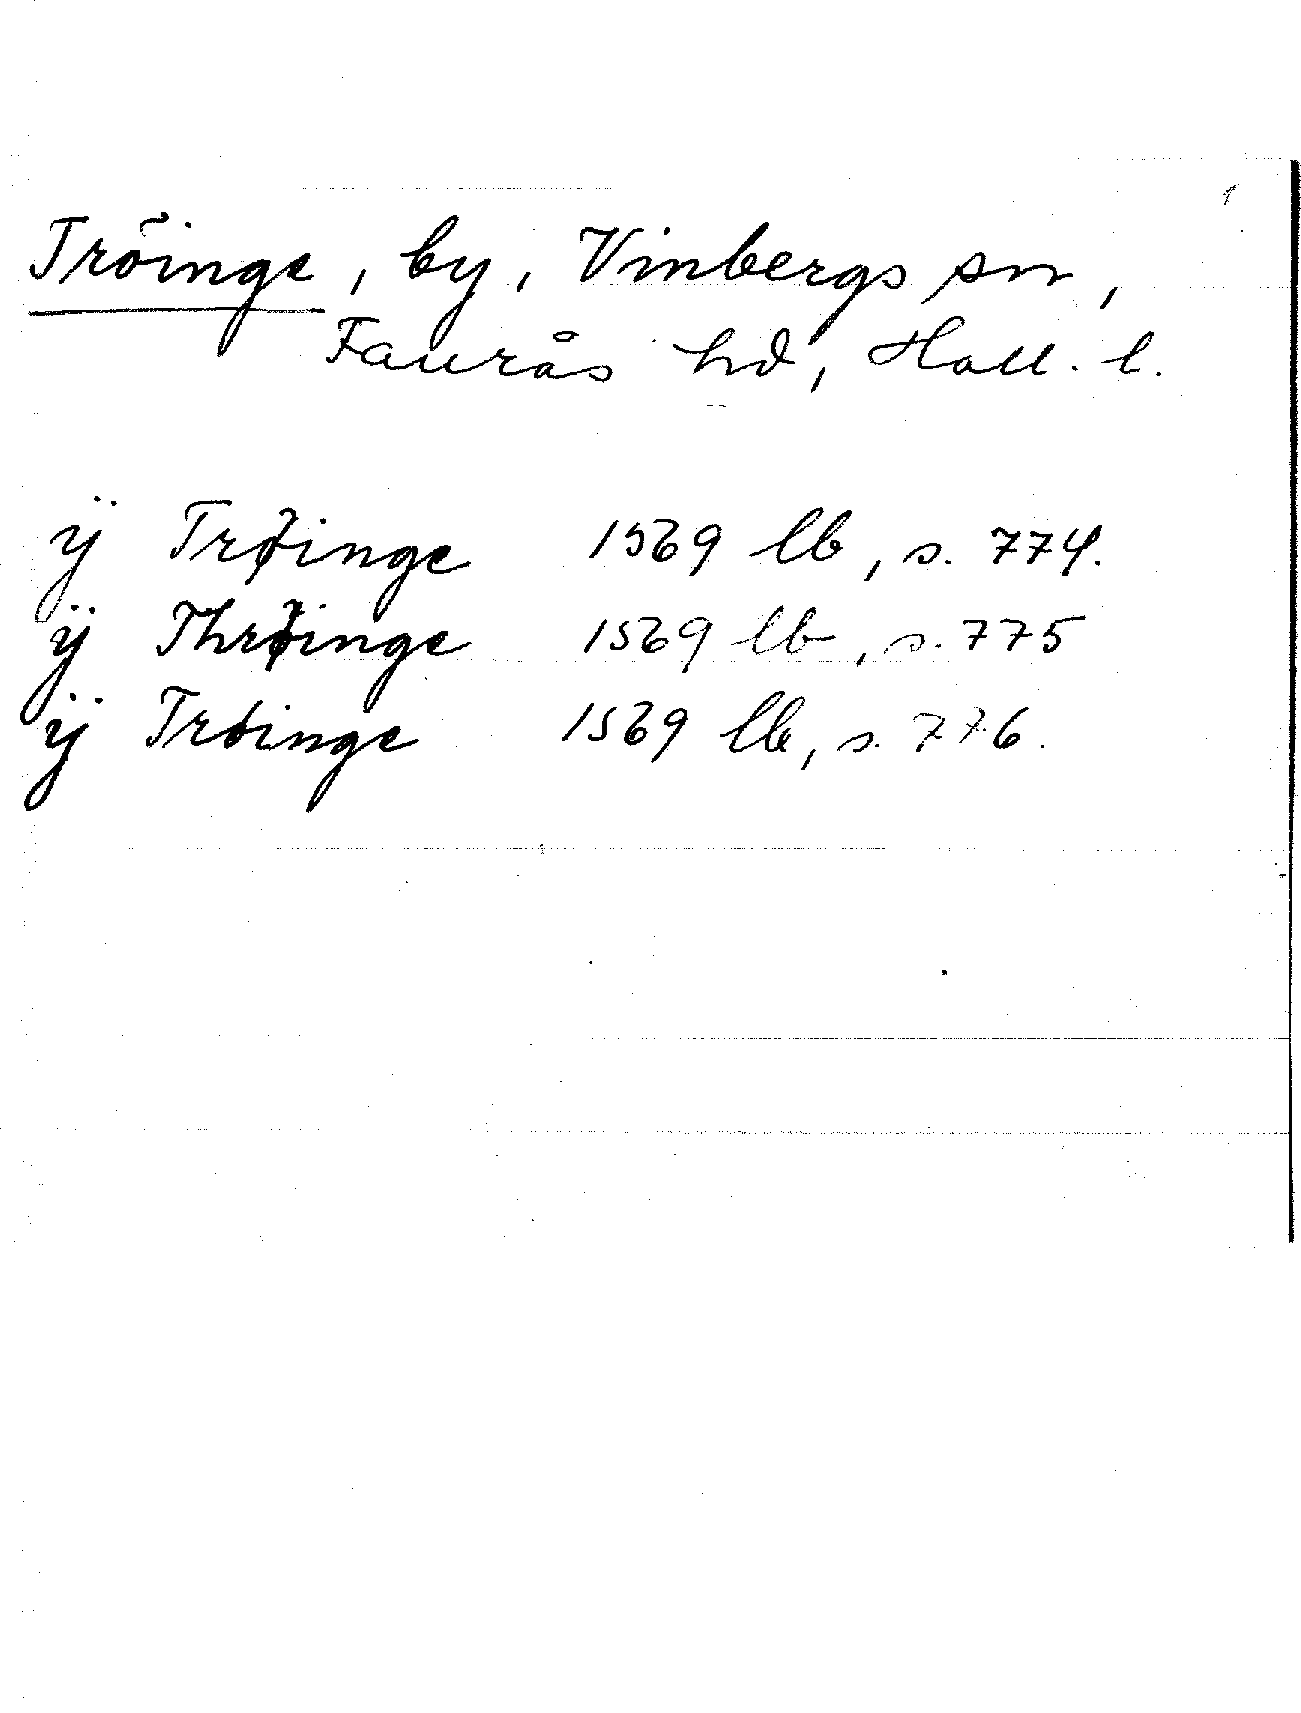 Tröinge, by, Vinbergs sn,
Faurås hd, Hall. l.
ÿ Trøinge 1569 lb, s. 774.
ÿ Thrøinge 1569 lb, s. 775
ÿ Trøinge 1569 lb, s. 776.